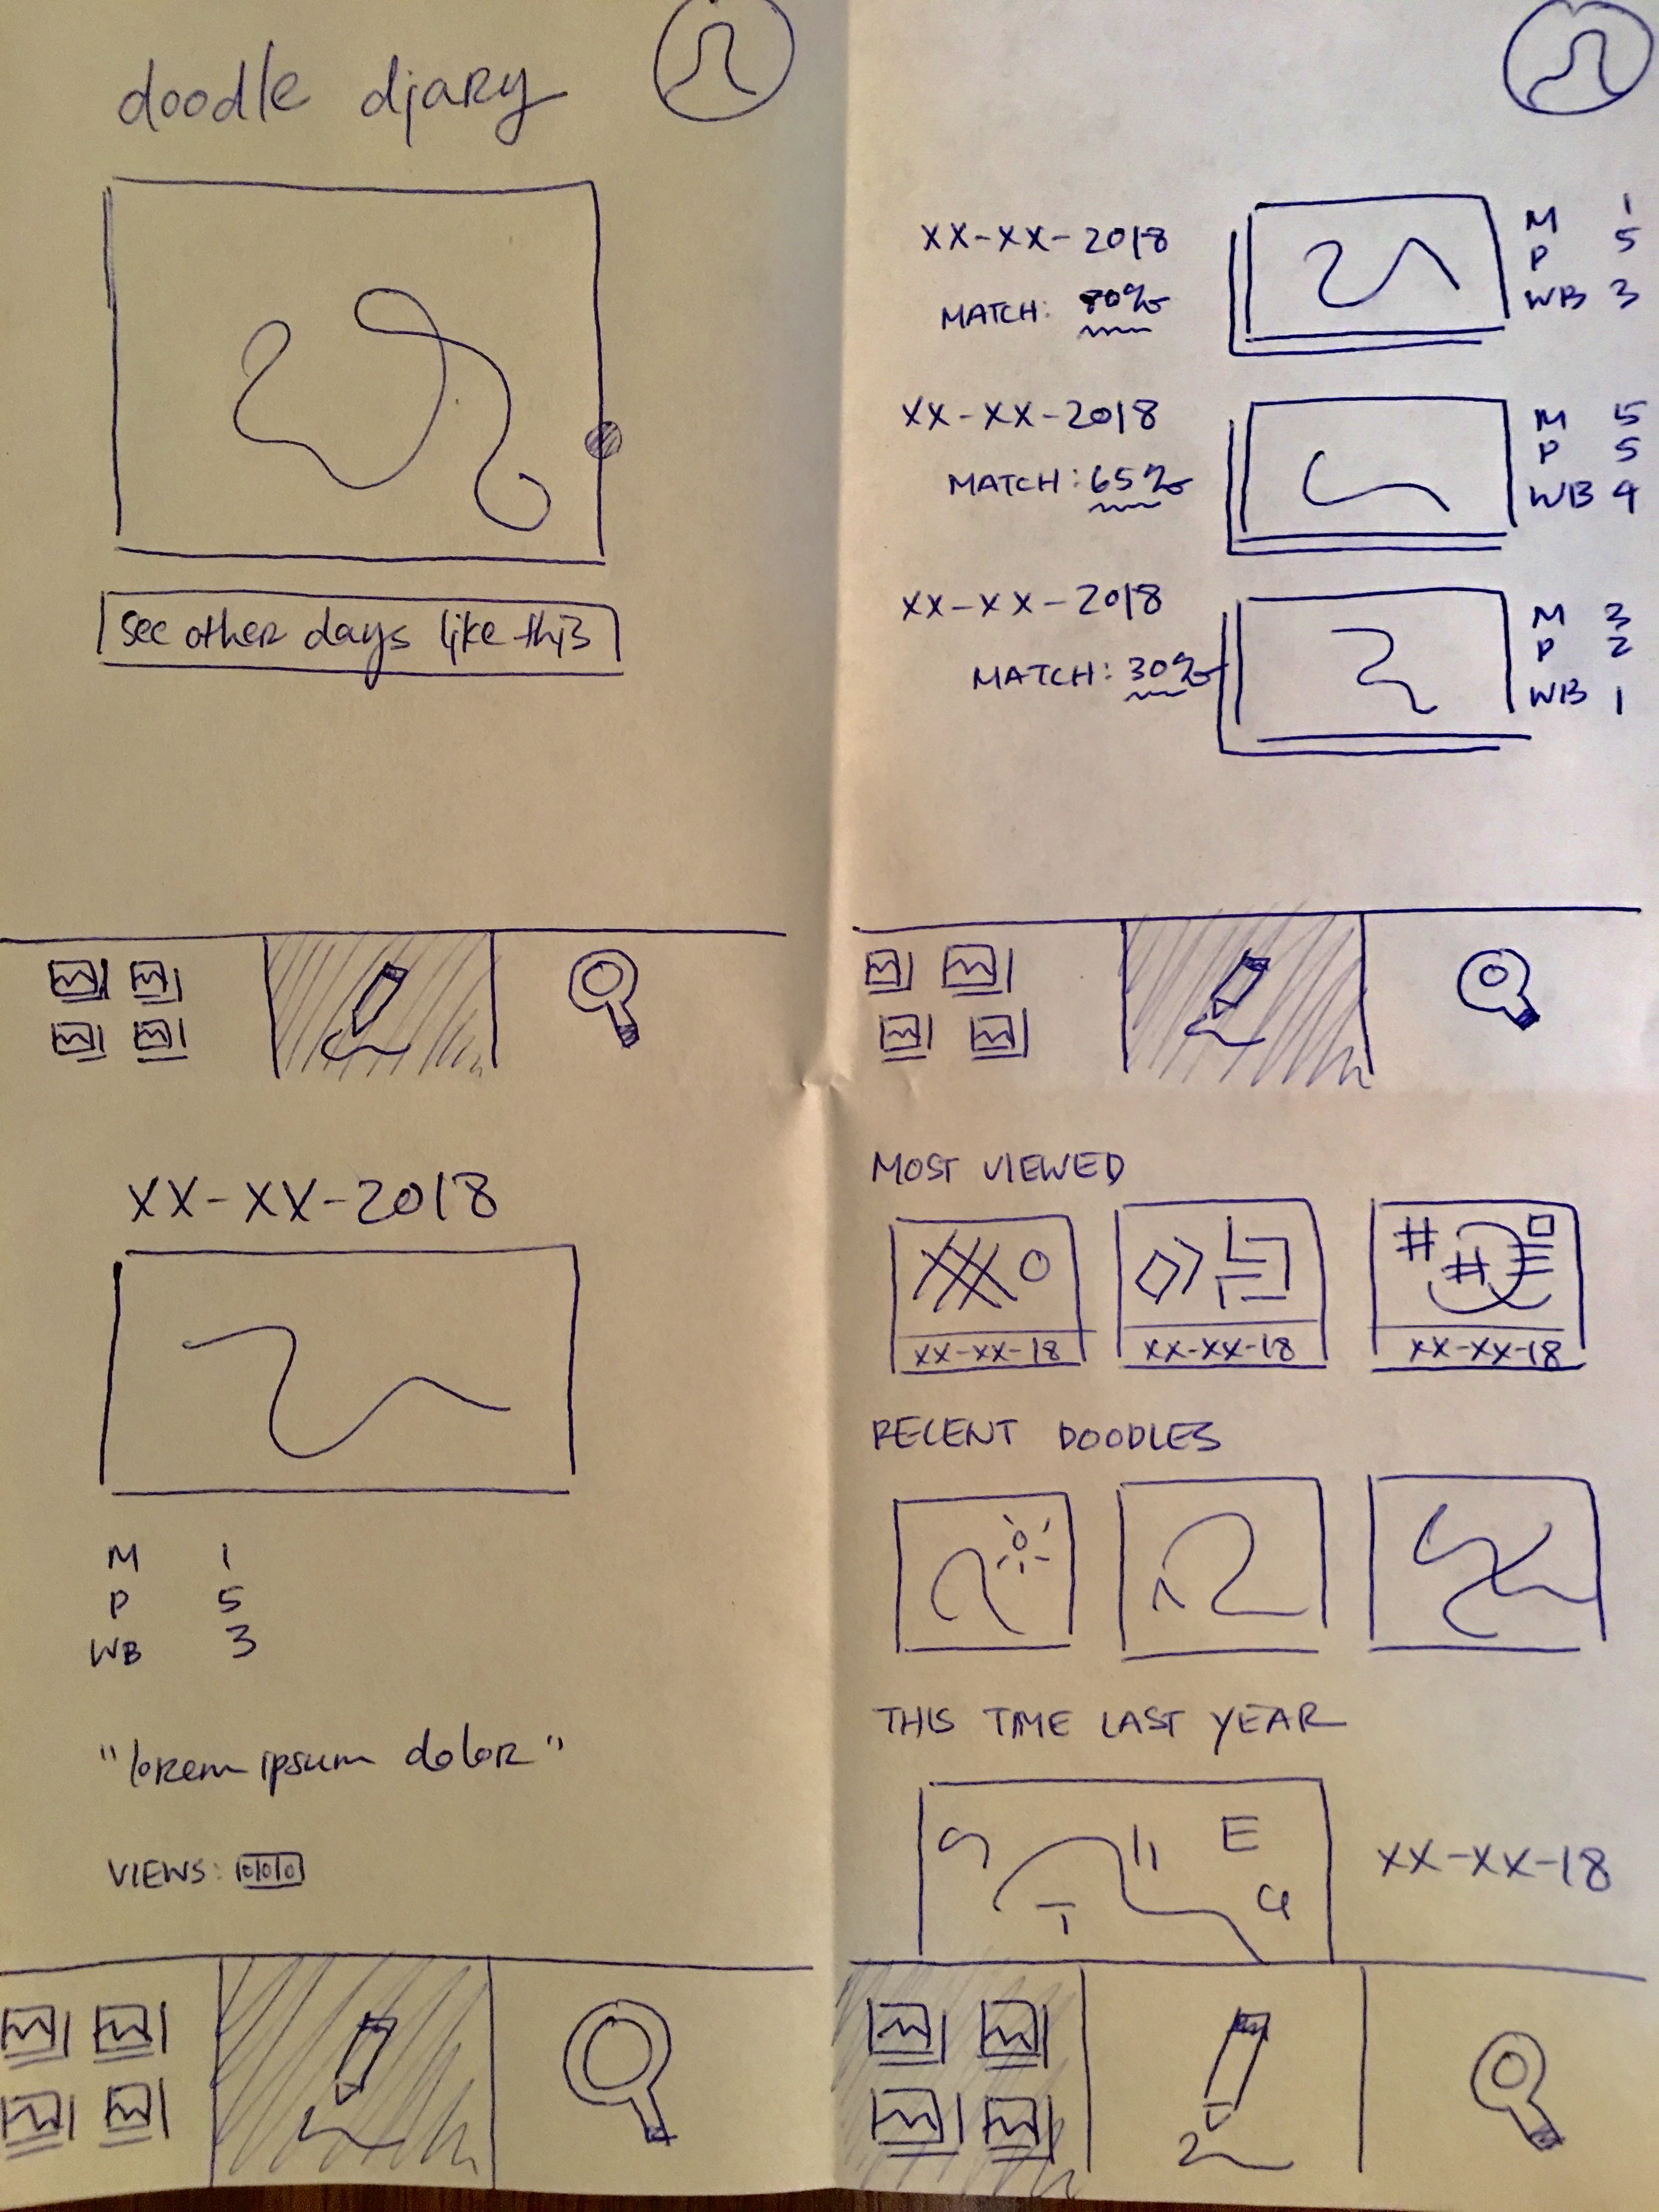 doodle diary
see other days like this
XX-XX-2018
MATCH: 80%
M 1
P 5
WB 3
XX-XX-2018
MATCH: 65%
M 5
P 5
WB 4
XX-XX-2018
MATCH: 30%
M 3
P 2
WB 1
XX-XX-2018
M 1
P 5
WB 3
"lorem ipsum dolor"
VIEWS:
MOST VIEWED
XX-XX-18 XX-XX-18 XX-XX-18
RECENT DOODLES
THIS TIME LAST YEAR
XX-XX-18